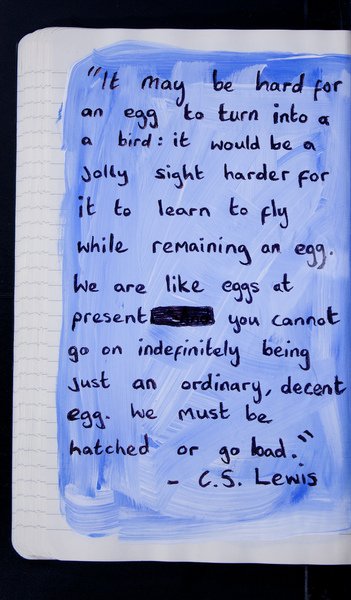 "It may be hard for
an egg to turn into a
a bird: it would be a
jolly sight harder for
it to learn to fly
while remaining an egg.
We are like eggs at
present you cannot
go on indefinitely being
just an ordinary, decent
egg. We must be
hatched or go bad."
- C.S. Lewis